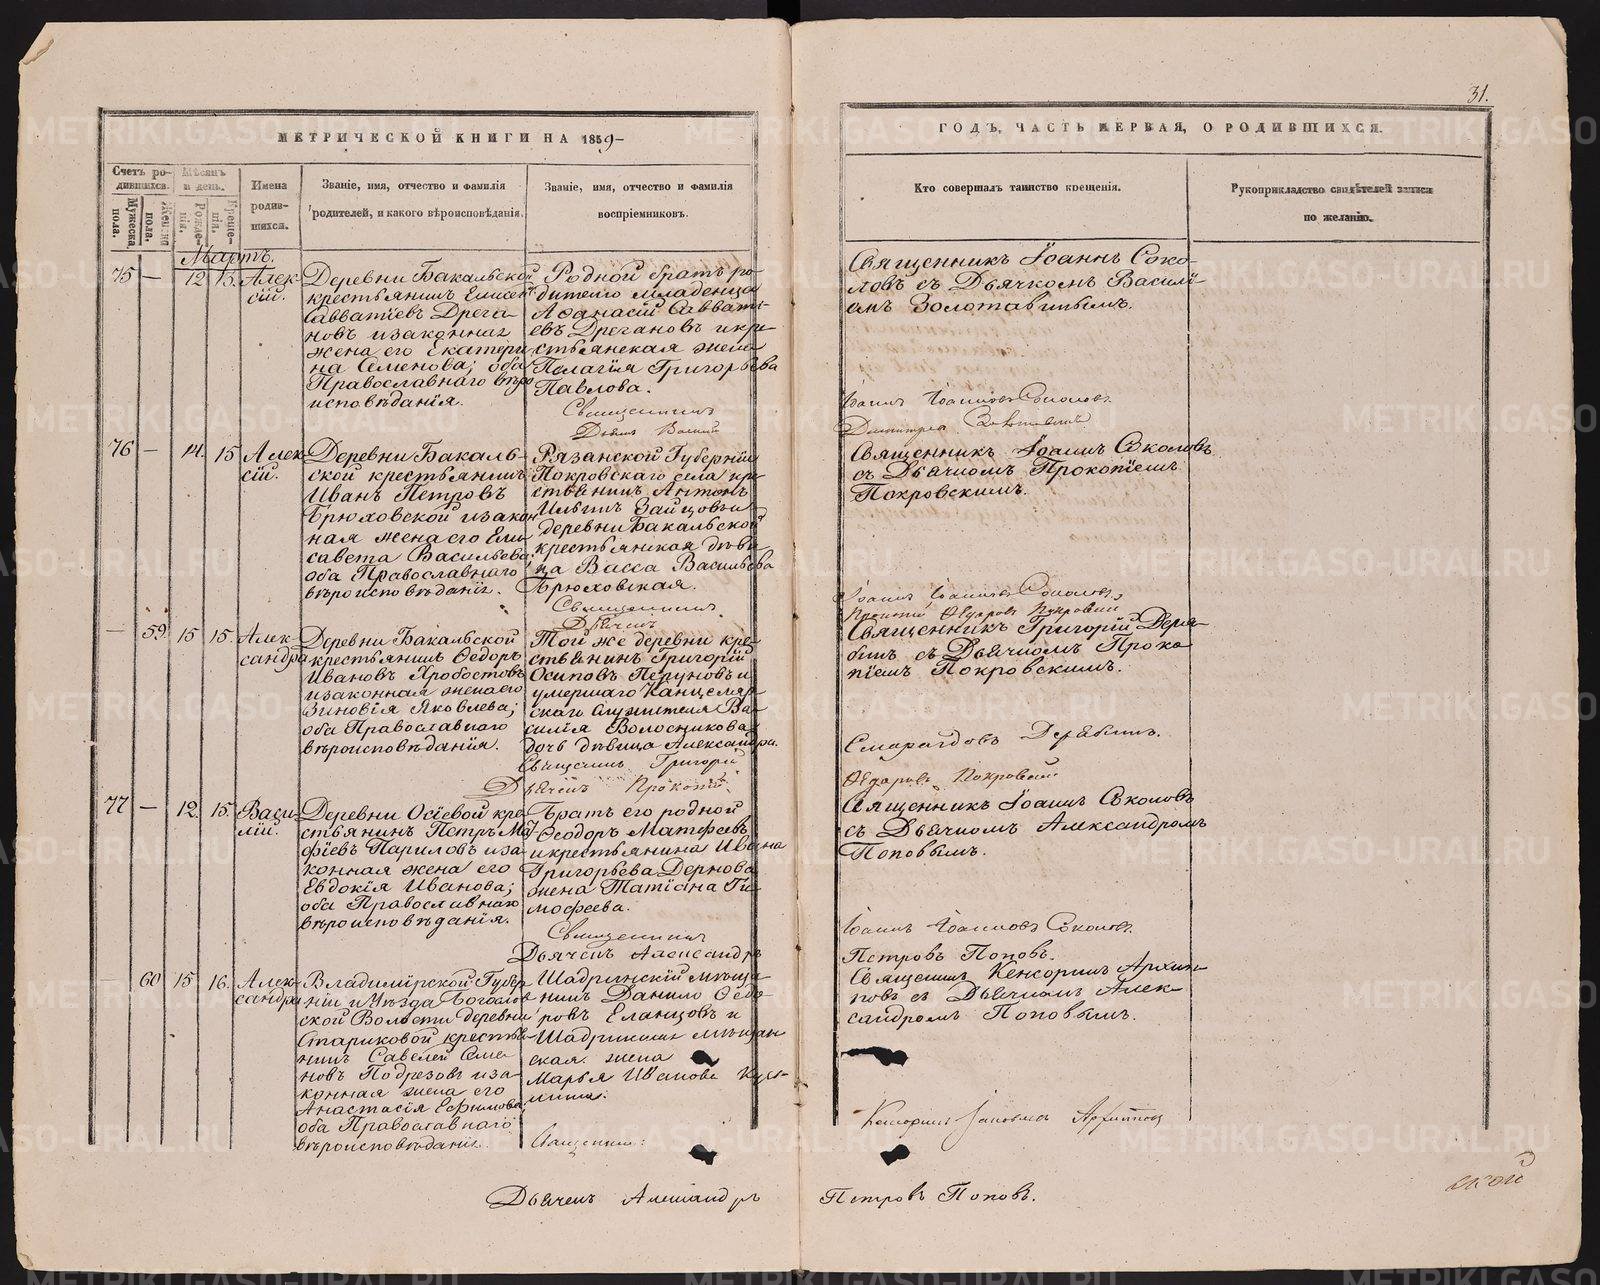 31.
МЕТРИЧЕСКОЙ КНИГИ НА 1859
ГОДЪ, ЧАСТЬ ПЕРВАЯ, О РОДИВШИХСЯ.
Счетъ ро-
дившихся.
Мужеска
пола.
Женска
пола.
Мѣсяцъ
и день.
Рожде-
нія.
Креще-
нія.
Имена
родив-
шихся.
Званіе, имя, отчество и фамилія
родителей, и какого вѣроисповѣданія.
Званіе, имя, отчество и фамилія
воспріемниковъ.
Кто совершалъ таинство крещенія.
Рукоприкладство свидѣтелей записи
по желанію.
Мартъ.
75 — 12 13. Алек-
сій.
Деревни Бакальской
крестьянинъ Елисей
Савватіевъ Дрега-
новъ и законная
жена его Екатери-
на Семенова; оба
Православнаго вѣро
исповѣданія.
Родной братъ ро-
дителю младенца
Аѳанасій Саввati-
евъ Дрегановъ и кре-
стьянская жена
Пелагія Григорьева
Павлова.
Священникъ Іоаннъ Соко-
ловъ съ Дьячкомъ Василі-
емъ Золотавинымъ.
Священникъ
Іоаннъ Іоанновъ Соколовъ.
76 — 14. 15 Алек-
сій.
Деревни Бакаль-
ской крестьянинъ
Иванъ Петровъ
Брюховской и закон
ная жена его Ели-
савета Васильева
оба Православнаго
вѣроисповѣданія.
Рязанской Губерніи
Покровскаго села кре-
стьянинъ Антонъ
Ильинъ Зайцовъ и
деревни Бакальской
крестьянская дѣви-
ца Васса Васильева
Брюховская.
Священникъ Іоаннъ Соколовъ
съ Дьячкомъ Прокопіемъ
Покровскимъ.
Священникъ
Іоаннъ Іоанновъ Соколовъ,
Дьячекъ
Прокопій Ѳедоровъ Покровскій
— 59. 15 15. Алек-
сандра
Деревни Бакальской
крестьянинъ Ѳедоръ
Ивановъ Хробостовъ
и законная жена его
Зиновія Яковлева;
оба Православнаго
вѣроисповѣданія.
Той же деревни кре-
стьянинъ Григорій
Осиповъ Перуновъ и
умершаго Канцеляр-
скаго Служителя Ва-
силія Волосникова
дочь дѣвица Александра.
Священникъ Григорій Деря-
бинъ съ Дьячкомъ Проко-
піемъ Покровскимъ.
Священникъ Григорій
Смарагдовъ Дерябинъ.
Дьячекъ Прокопій
Ѳедоровъ Покровскій
77 — 12. 15. Васи-
лій.
Деревни Осіевой кре-
стьянинъ Петръ Мат
фіевъ Париловъ и за-
конная жена его
Евдокія Иванова;
оба Православнаго
вѣроисповѣданія.
Братъ его родной
Ѳеодоръ Матфеевъ
и крестьянина Ивана
Григорьева Дернова
жена Татіана Ти-
мофеева.
Священникъ Іоаннъ Соколовъ
съ Дьячкомъ Александромъ
Поповымъ.
Священникъ
Іоаннъ Іоанновъ Соколовъ.
Дьячекъ Александръ
Петровъ Поповъ.
— 60 15 16. Алек-
сандра
Владимірской Губер
ніи и Уѣзда Боголюб
ской Волости деревни
Стариковой крестья-
нинъ Савелій Семе-
новъ Подрезовъ и за-
конная жена его
Анастасія Ефимова;
оба Православнаго
вѣроисповѣданія.
Шадринскій мѣща-
нинъ Данило Ѳедо-
ровъ Еланцовъ и
Шадринская мѣщан
ская жена
Марья Иванова
Священникъ Кенсоринъ Архип-
повъ съ Дьячкомъ Алек-
сандромъ Поповымъ.
Священникъ
Дьячекъ Александръ
Петровъ Поповъ.
ской
METRIKI.GASO-URAL.RU